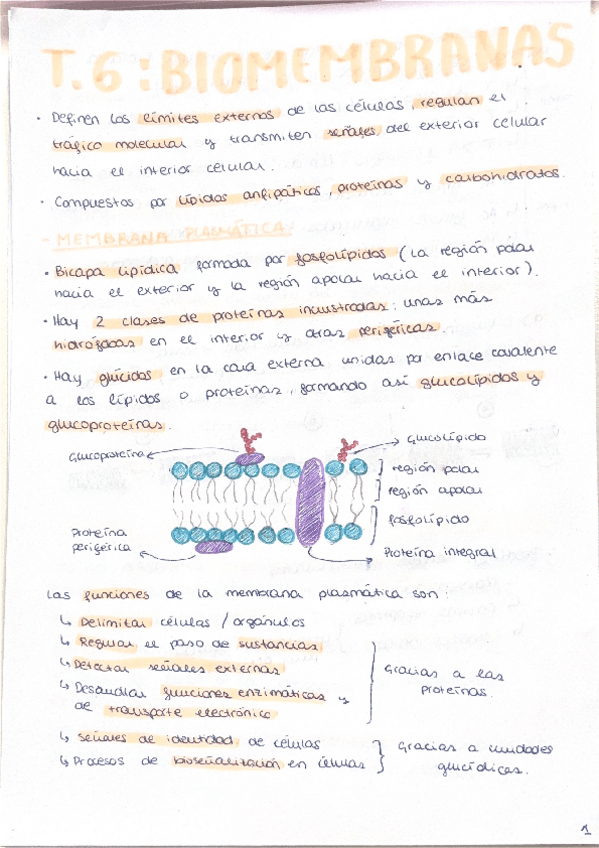 T.6: BIOMEMBRANAS
· Definen los límites externos de las células, regulan el
tráfico molecular y transmiten señales del exterior celular
hacia el interior celular.
· Compuestos por lípidos anfipáticos, proteínas y carbohidratos.
- MEMBRANA PLASMÁTICA:
· Bicapa lipídica formada por fosfolípidos (la región polar
hacia el exterior y la región apolar hacia el interior).
· Hay 2 clases de proteínas incrustradas: unas más
hidrófobas en el interior y otras periféricas.
· Hay glúcidos en la cara externa unidas por enlace covalente
a los lípidos o proteínas, formando así glucolípidos y
glucoproteínas.
Glucoproteína
Glucolípido
región polar
región apolar
fosfolípido
Proteína
periférica
Proteína integral
Las funciones de la membrana plasmática son:
↳ Delimitar células / orgánulos
↳ Regular el paso de sustancias
↳ Detectar señales externas
↳ Desarrollar funciones enzimáticas y
de transporte electrónico
Gracias a las
proteínas.
↳ Señales de identidad de células
↳ Procesos de bioseñalización en células
Gracias a unidades
glucídicas.
1